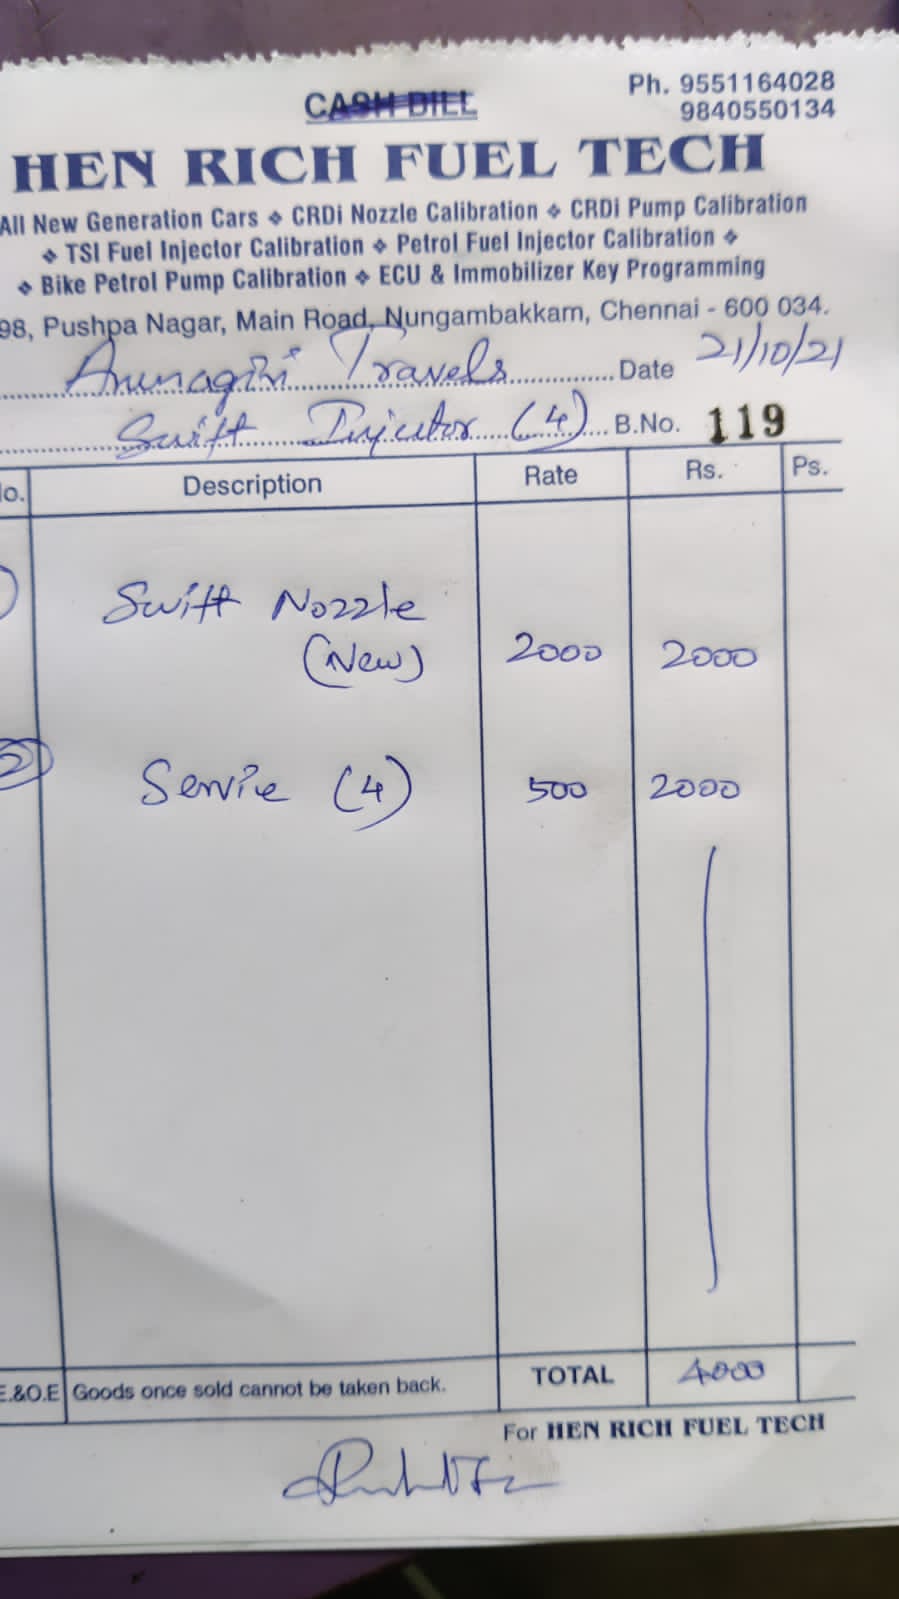 CASH BILL
Ph. 9551164028
9840550134
HEN RICH FUEL TECH
All New Generation Cars ❖ CRDi Nozzle Calibration ❖ CRDi Pump Calibration
❖ TSI Fuel Injector Calibration ❖ Petrol Fuel Injector Calibration ❖
❖ Bike Petrol Pump Calibration ❖ ECU & Immobilizer Key Programming
98, Pushpa Nagar, Main Road, Nungambakkam, Chennai - 600 034.
Arunagiri Travels Date 21/10/21
Swift Injector (4) B.No. 119
No. Description Rate Rs. Ps.
Swift Nozzle
(New) 2000 2000
2) Service (4) 500 2000
E.&O.E Goods once sold cannot be taken back. TOTAL 4000
For HEN RICH FUEL TECH